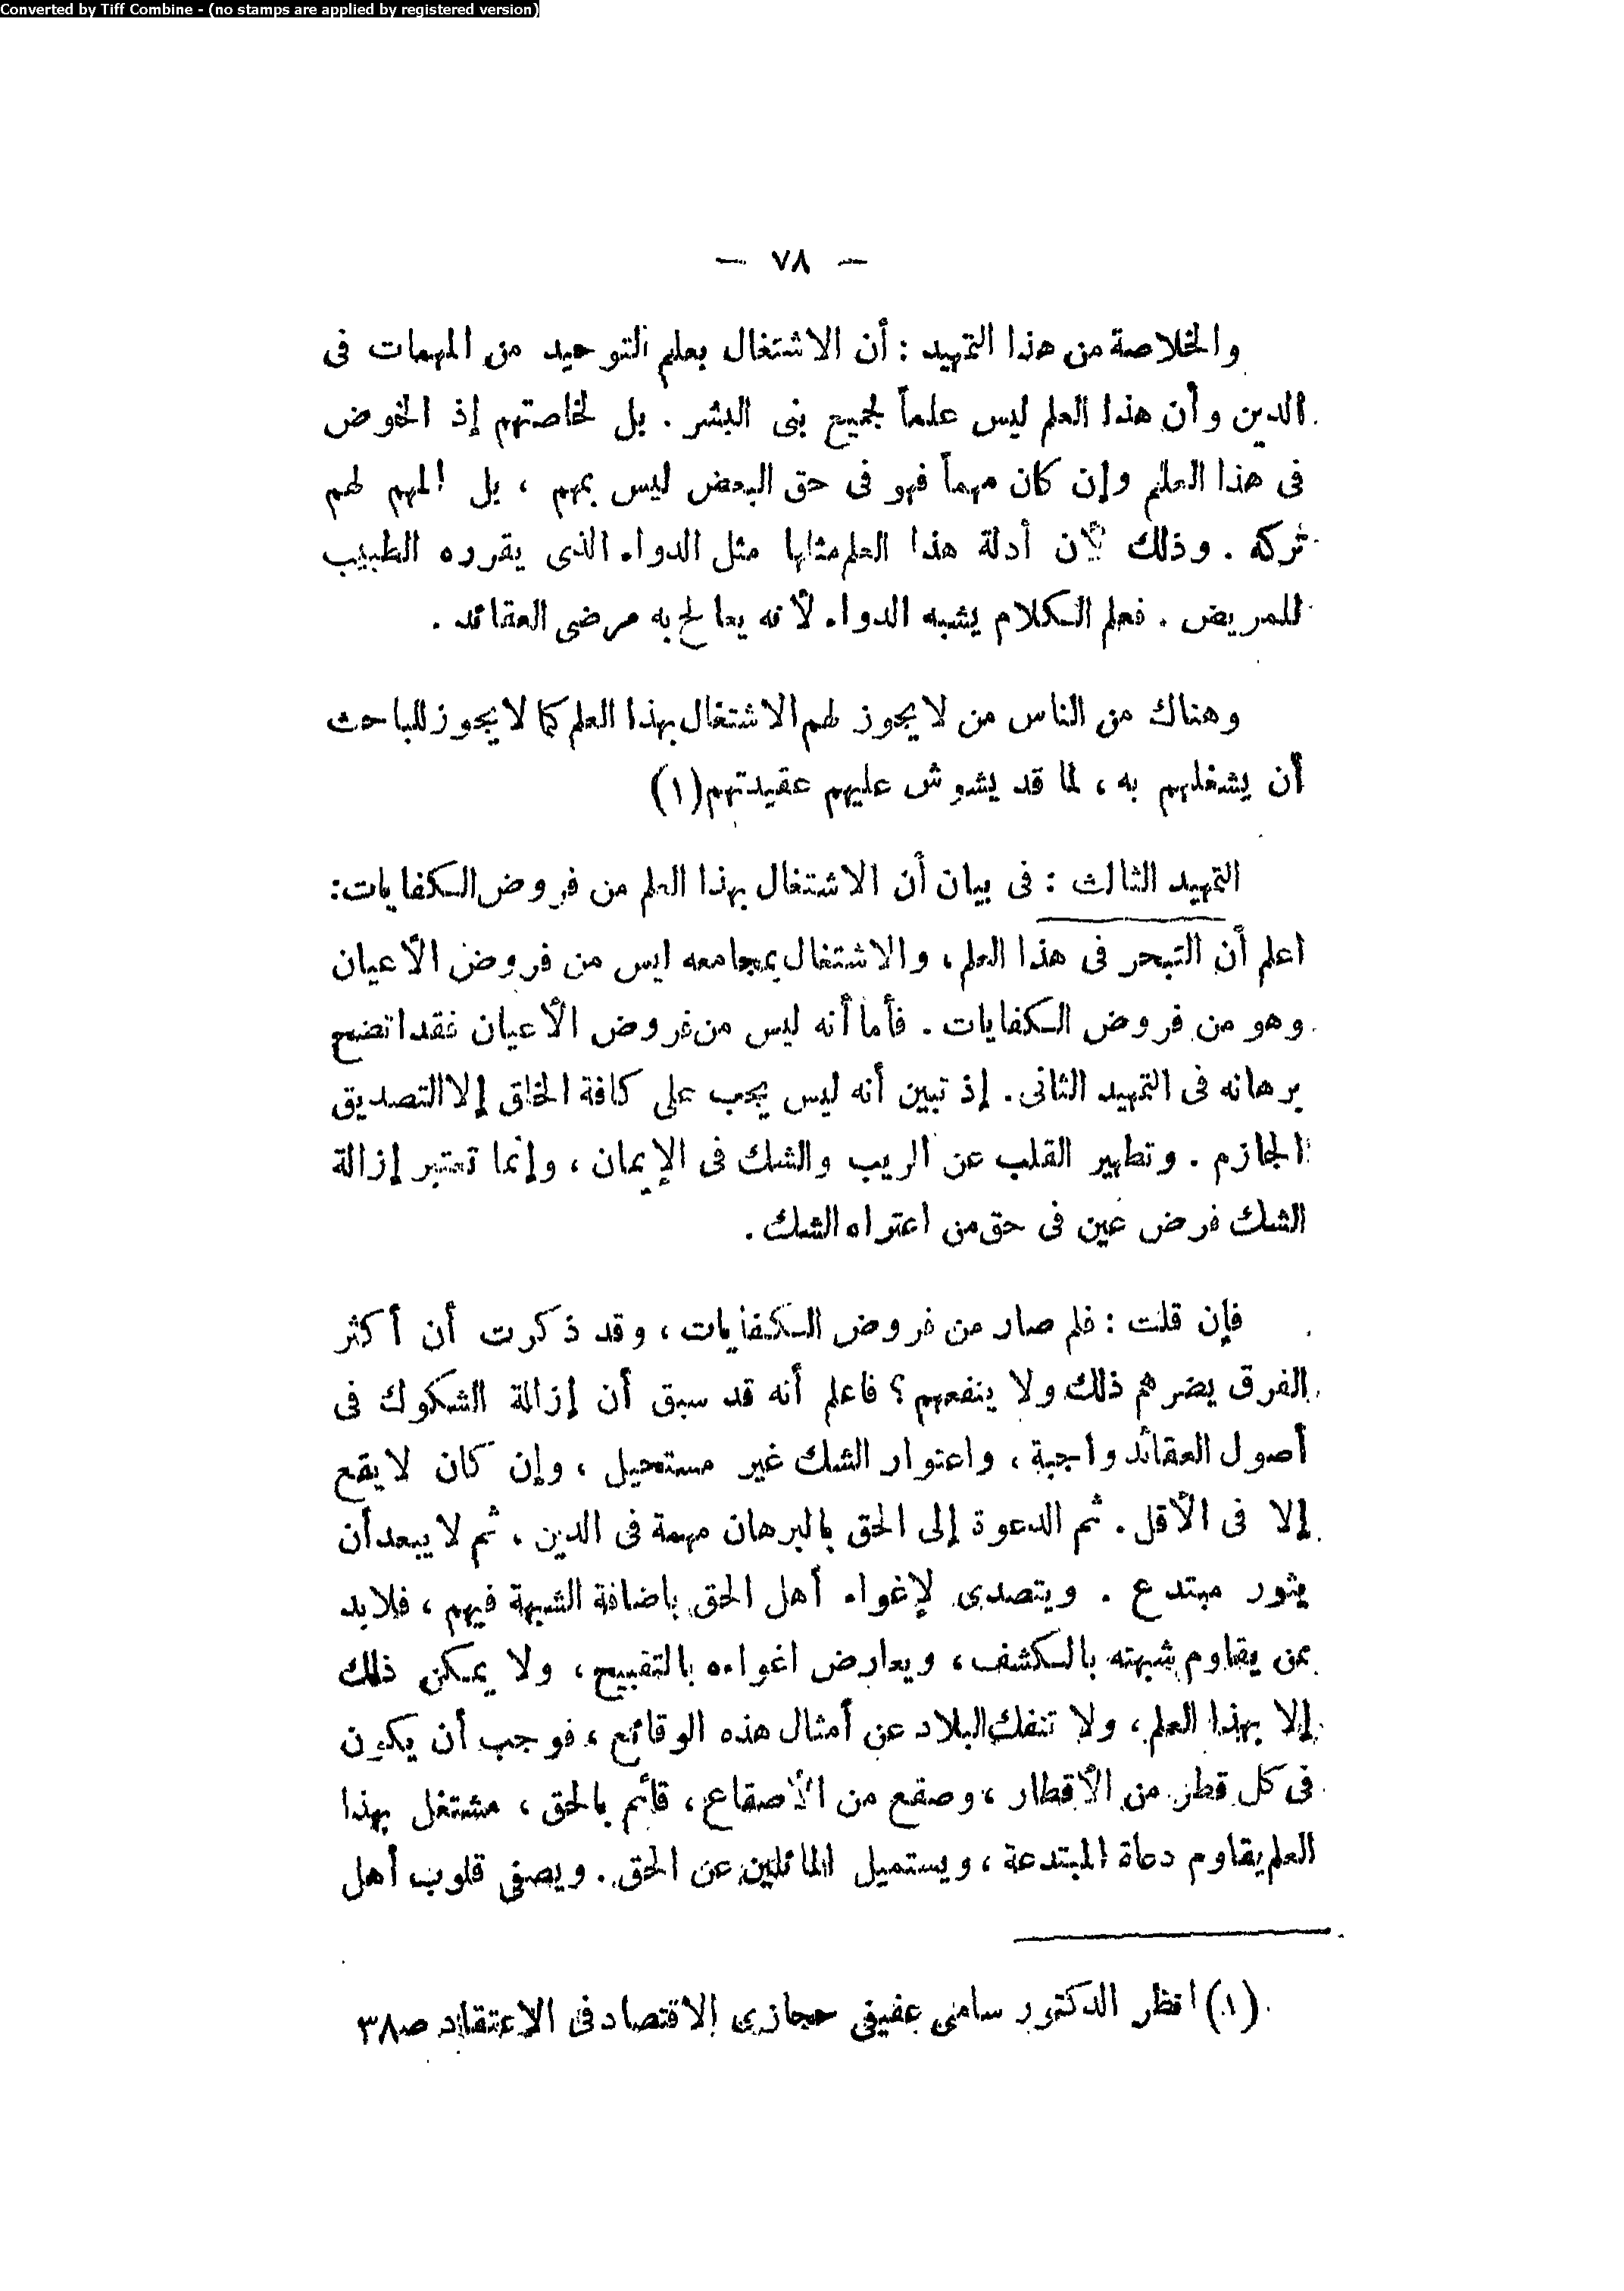 Converted by Tiff Combine - (no stamps are applied by registered version)
— ٧٨ —
والخلاصة من هذا التمهيد : أن الاشتغال بعلم التوحيد من المهمات فى
الدين وأن هذا العلم ليس علماً لجميع بنى البشر . بل لخاصتهم إذ الخوض
فى هذا العلم وإن كان مهماً فهو فى حق البعض ليس بمهم ، بل المهم لهم
تركه . وذلك لأن أدلة هذا العلم مثلها مثل الدواء الذى يقرره الطبيب
للمريض . فعلم الكلام يشبه الدواء لأنه يعالج به مرضى العقائد .
وهناك من الناس من لا يجوز لهم الاشتغال بهذا العلم كما لا يجوز للباحث
أن يشغلهم به ، لما قد يشوش عليهم عقيدتهم (١)
التمهيد الثالث : فى بيان أن الاشتغال بهذا العلم من فروض الكفايات :
اعلم أن التبحر فى هذا العلم ، والاشتغال بمجامعه ليس من فروض الأعيان
وهو من فروض الكفايات . فأما أنه ليس من فروض الأعيان فقد اتضح
برهانه فى التمهيد الثانى . إذ تبين أنه ليس يجب على كافة الخلق إلا التصديق
الجازم . وتطهير القلب عن الريب والشك فى الإيمان ، وإنما تعتبر إزالة
الشك فرض عين فى حق من اعتراه الشك .
فإن قلت : فلم صار من فروض الكفايات ، وقد ذكرت أن أكثر
الفرق يضرهم ذلك ولا ينفعهم ؟ فاعلم أنه قد سبق أن إزالة الشكوك فى
أصول العقائد واجبة ، واعتوار الشك غير مستحيل ، وإن كان لا يقع
إلا فى الأقل . ثم الدعوة إلى الحق بالبرهان مهمة فى الدين . ثم لا يبعد أن
يثور مبتدع . ويتصدى لإغواء أهل الحق باضافة الشبهة فيهم ، فلابد
ممن يقاوم شبهته بالكشف ، ويعارض اغواءه بالتقبيح ، ولا يمكن ذلك
إلا بهذا العلم ، ولا تنفك البلاد عن أمثال هذه الوقائع ، فوجب أن يكون
فى كل قطر من الأقطار ، وصقع من الأصقاع ، قائم بالحق ، مشتغل بهذا
العلم يقاوم دعاة المبتدعة ، ويستميل المائلين عن الحق . ويصفى قلوب أهل
(١) انظر الدكتور سامى عفيفى حجازى الاقتصاد فى الاعتقاد ص٣٨